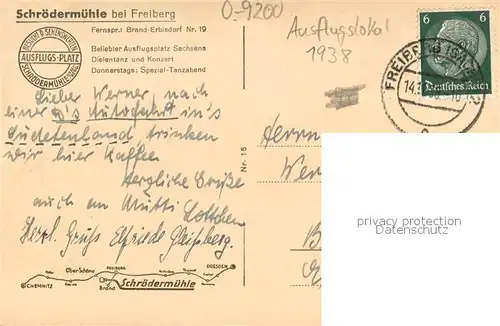 Schrödermühle bei Freiberg
Fernspr.: Brand-Erbisdorf Nr. 19
Beliebter Ausflugsplatz Sachsens
Dielentanz und Konzert
Donnerstags: Spezial-Tanzabend
AUSFLUGS-PLATZ
SCHRÖDERMÜHLE
O-9200
Ausflugslokal
1938
6 6
Deutsches Reich
FREIBERG (SACHS)
14.
Lieber Werner, nach
einer Autofahrt in's
Sudetenland trinken
wir hier Kaffee
Herzliche Grüße
auch an Mutti
Lottchen
Herzl. Gruß Elfriede
Herrn
Nr. 15
privacy protection
Datenschutz
CHEMNITZ
Ober-Schöna
FREIBERG
DRESDEN
Brand
Schrödermühle